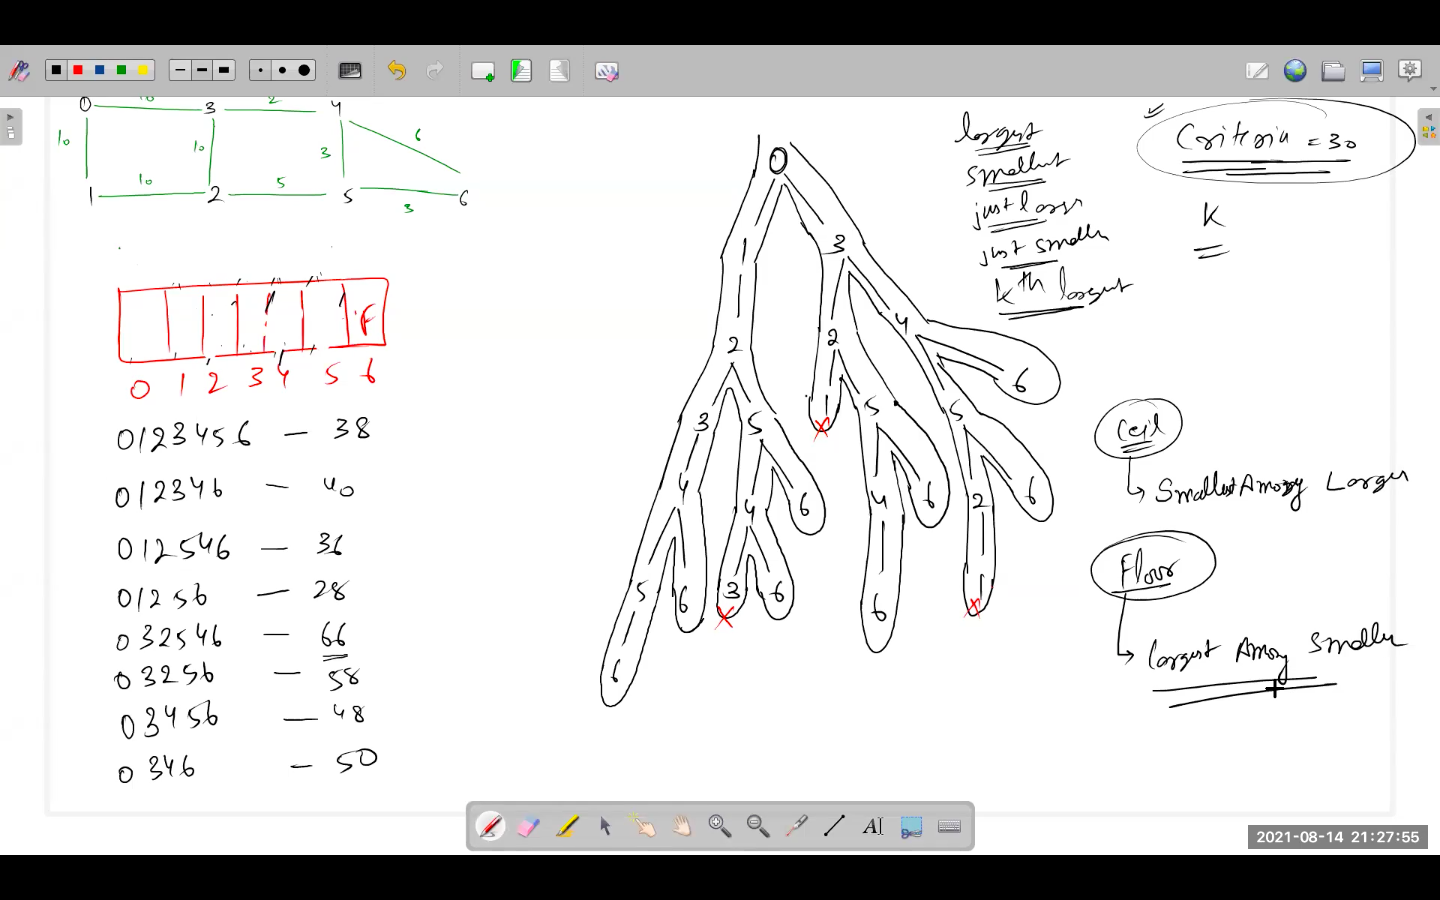 0 10 3 2 4
10 10 3 6
1 10 2 5 5 3 6
F
0 1 2 3 4 5 6
0123456 — 38
012346 — 40
012546 — 36
01256 — 28
032546 — 66
03256 — 58
03456 — 48
0346 — 50
0
1 3
2 2 4
3 5 1 5 5 6
4 4 6 4 6 2 6
5 6 3 6 6 1
6
largest
smallest
just larger
just smaller
kth largest
Criteria = 30
K
Ceil
Smallest Among Larger
Floor
largest Among Smaller
AI
2021-08-14 21:27:55